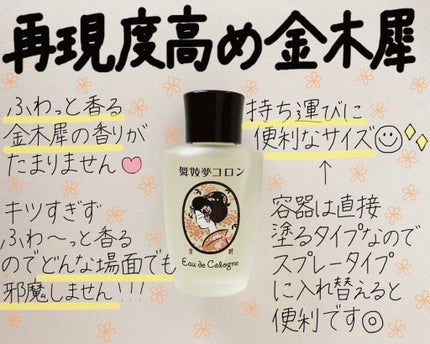 再現度高め金木犀
ふわっと香る
金木犀の香りが
たまりません
キツすぎず
ふわ〜っと香る
のでどんな場面でも
邪魔しません!!!
持ち運びに
便利なサイズ
↑
容器は直接
塗るタイプなので
スプレータイプ
に入れ替えると
便利です◎
舞妓夢コロン
Eau de Cologne